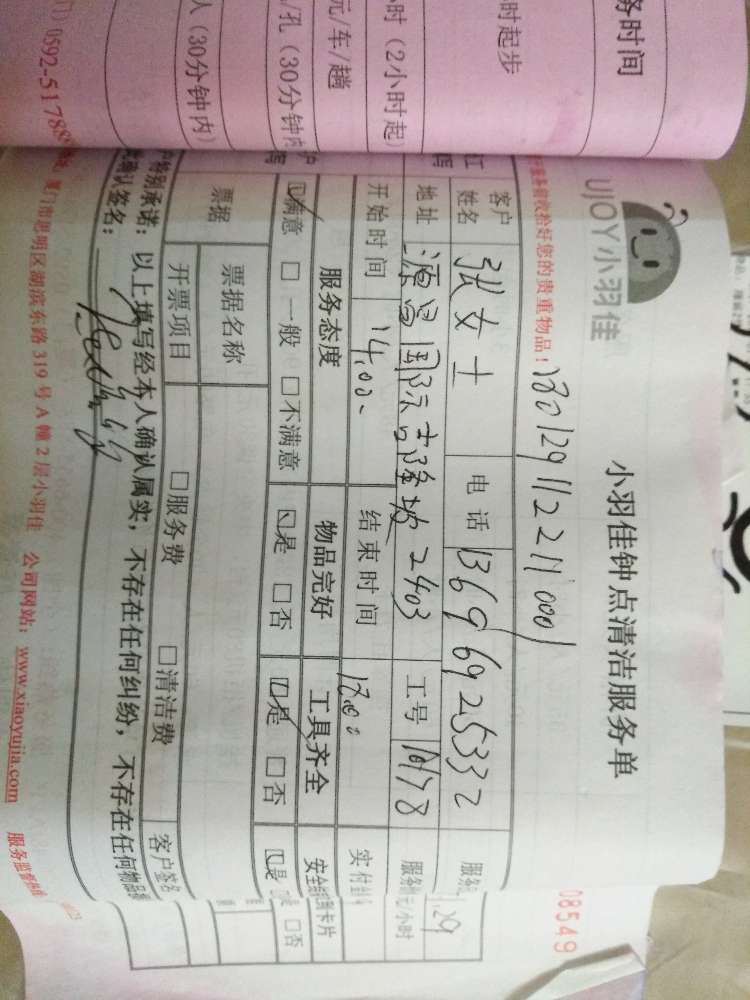 务时间
时起步
小时（2小时起）
元/车/趟
/孔（30分钟内
人（30分钟内）
0592-5178
UJOY小羽佳
小羽佳钟点清洁服务单
08549
收拾好您的贵重物品！
180129112211000
客户姓名 张女士 电话 13696925332
29
地址 源昌国际 2403 工号 10178 元/小时
开始时间 14:00 结束时间 18:00 实付
服务态度 物品完好 工具齐全
☑满意 □一般 □不满意 ☑是 □否 ☑是 □否 ☑是 □否
票据 票据名称
开票项目 □服务费 □清洁费 客户签名
特别承诺：以上填写经本人确认属实，不存在任何纠纷，不存在任何物品
确认签名：
厦门市思明区湖滨东路319号A幢2层小羽佳 公司网站：www.xiaoyujia.com 服务监督热线